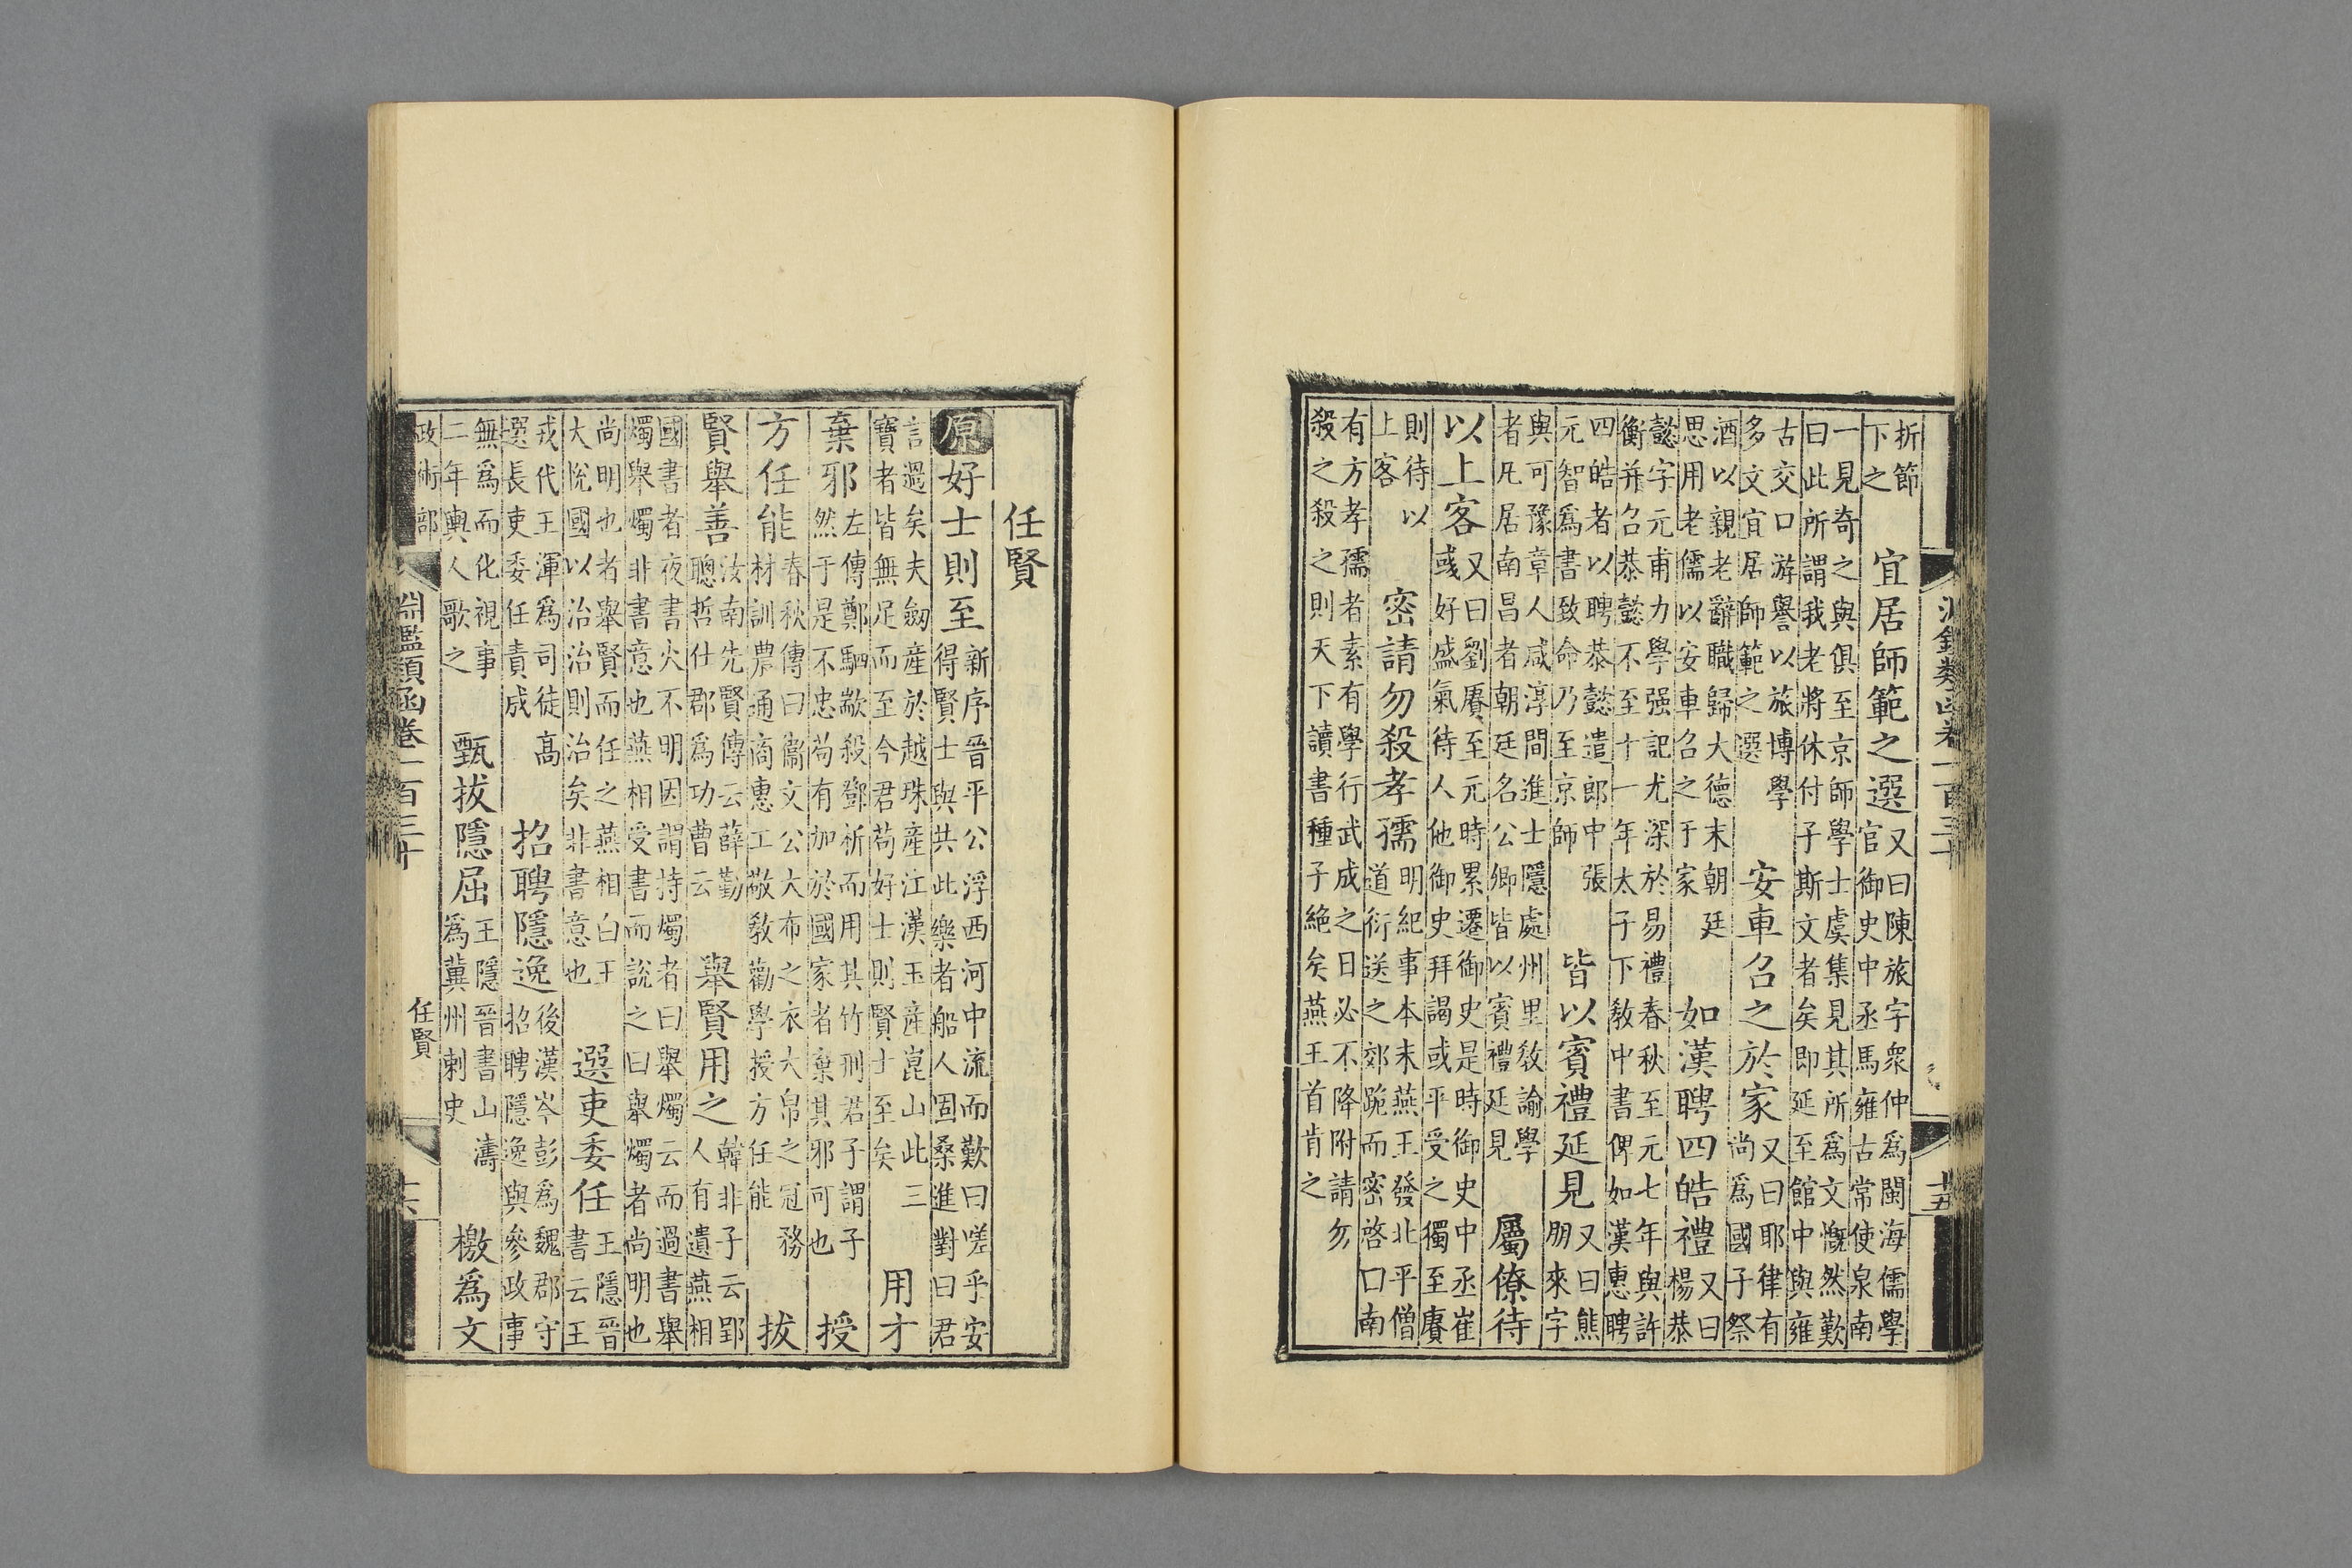 淵鑑類函卷一百三十 十五
折節下之 宜居師範之選 又曰陳旅字衆仲爲閩海儒學官御史中丞馬雍古常使泉南
一見奇之與俱至京師學士虞集見其所爲文慨然歎曰此所謂我老將休付子斯文者矣即延至館中與雍
古交口游譽以旅博學多文宜居師範之選 安車召之於家 又曰耶律有尚爲國子祭
酒以親老辭職歸大德末朝廷思用老儒以安車召之于家 如漢聘四皓禮 又曰楊恭
懿字元甫力學强記尤深於易禮春秋至元七年與許衡并召恭懿不至十一年太子下敎中書俾如漢惠聘
四皓者以聘恭懿遣郎中張元智爲書致命乃至京師 皆以賓禮延見 又曰熊朋來字
與可豫章人咸淳間進士隱處州里敎諭學者凡居南昌者朝廷名公卿皆以賓禮延見 屬僚待
以上客 又曰劉賡至元時累遷御史是時御史中丞崔彧好盛氣待人他御史拜謁或平受之獨至賡
則待以上客 密請勿殺孝孺 明紀事本末燕王發北平僧道衍送之郊跪而密啓曰南
有方孝孺者素有學行武成之日必不降附請勿殺之殺之則天下讀書種子絕矣燕王首肯之
任賢
原 好士則至 新序晋平公浮西河中流而歎曰嗟乎安得賢士與共此樂者船人固桑進對曰君
言過矣夫劒產於越珠產江漢玉產崑山此三寶者皆無足而至今君苟好士則賢士至矣 用才
棄邪 左傳鄭駟歂殺鄧析而用其竹刑君子謂子然于是不忠苟有加於國家者棄其邪可也 授
方任能 春秋傳曰衞文公大布之衣大帛之冠務材訓農通商惠工敬敎勸學授方任能 拔
賢舉善 汝南先賢傳云薛勤聰哲仕郡爲功曹云 舉賢用之 韓非子云郢人有遺燕相
國書者夜書火不明因謂持燭者曰舉燭云而過書舉燭舉燭非書意也燕相受書而說之曰舉燭者尚明也
尚明也者舉賢而任之燕相白王大悅國以治治則治矣非書意也 選吏委任 王隱晉書云王
戎代王渾爲司徒高選長吏委任責成 招聘隱逸 後漢岑彭爲魏郡守招聘隱逸與參政事
無爲而化視事二年輿人歌之 甄拔隱屈 王隱晉書山濤爲冀州刺史 檄爲文
政術部 淵鑑類函卷一百三十 任賢 十六